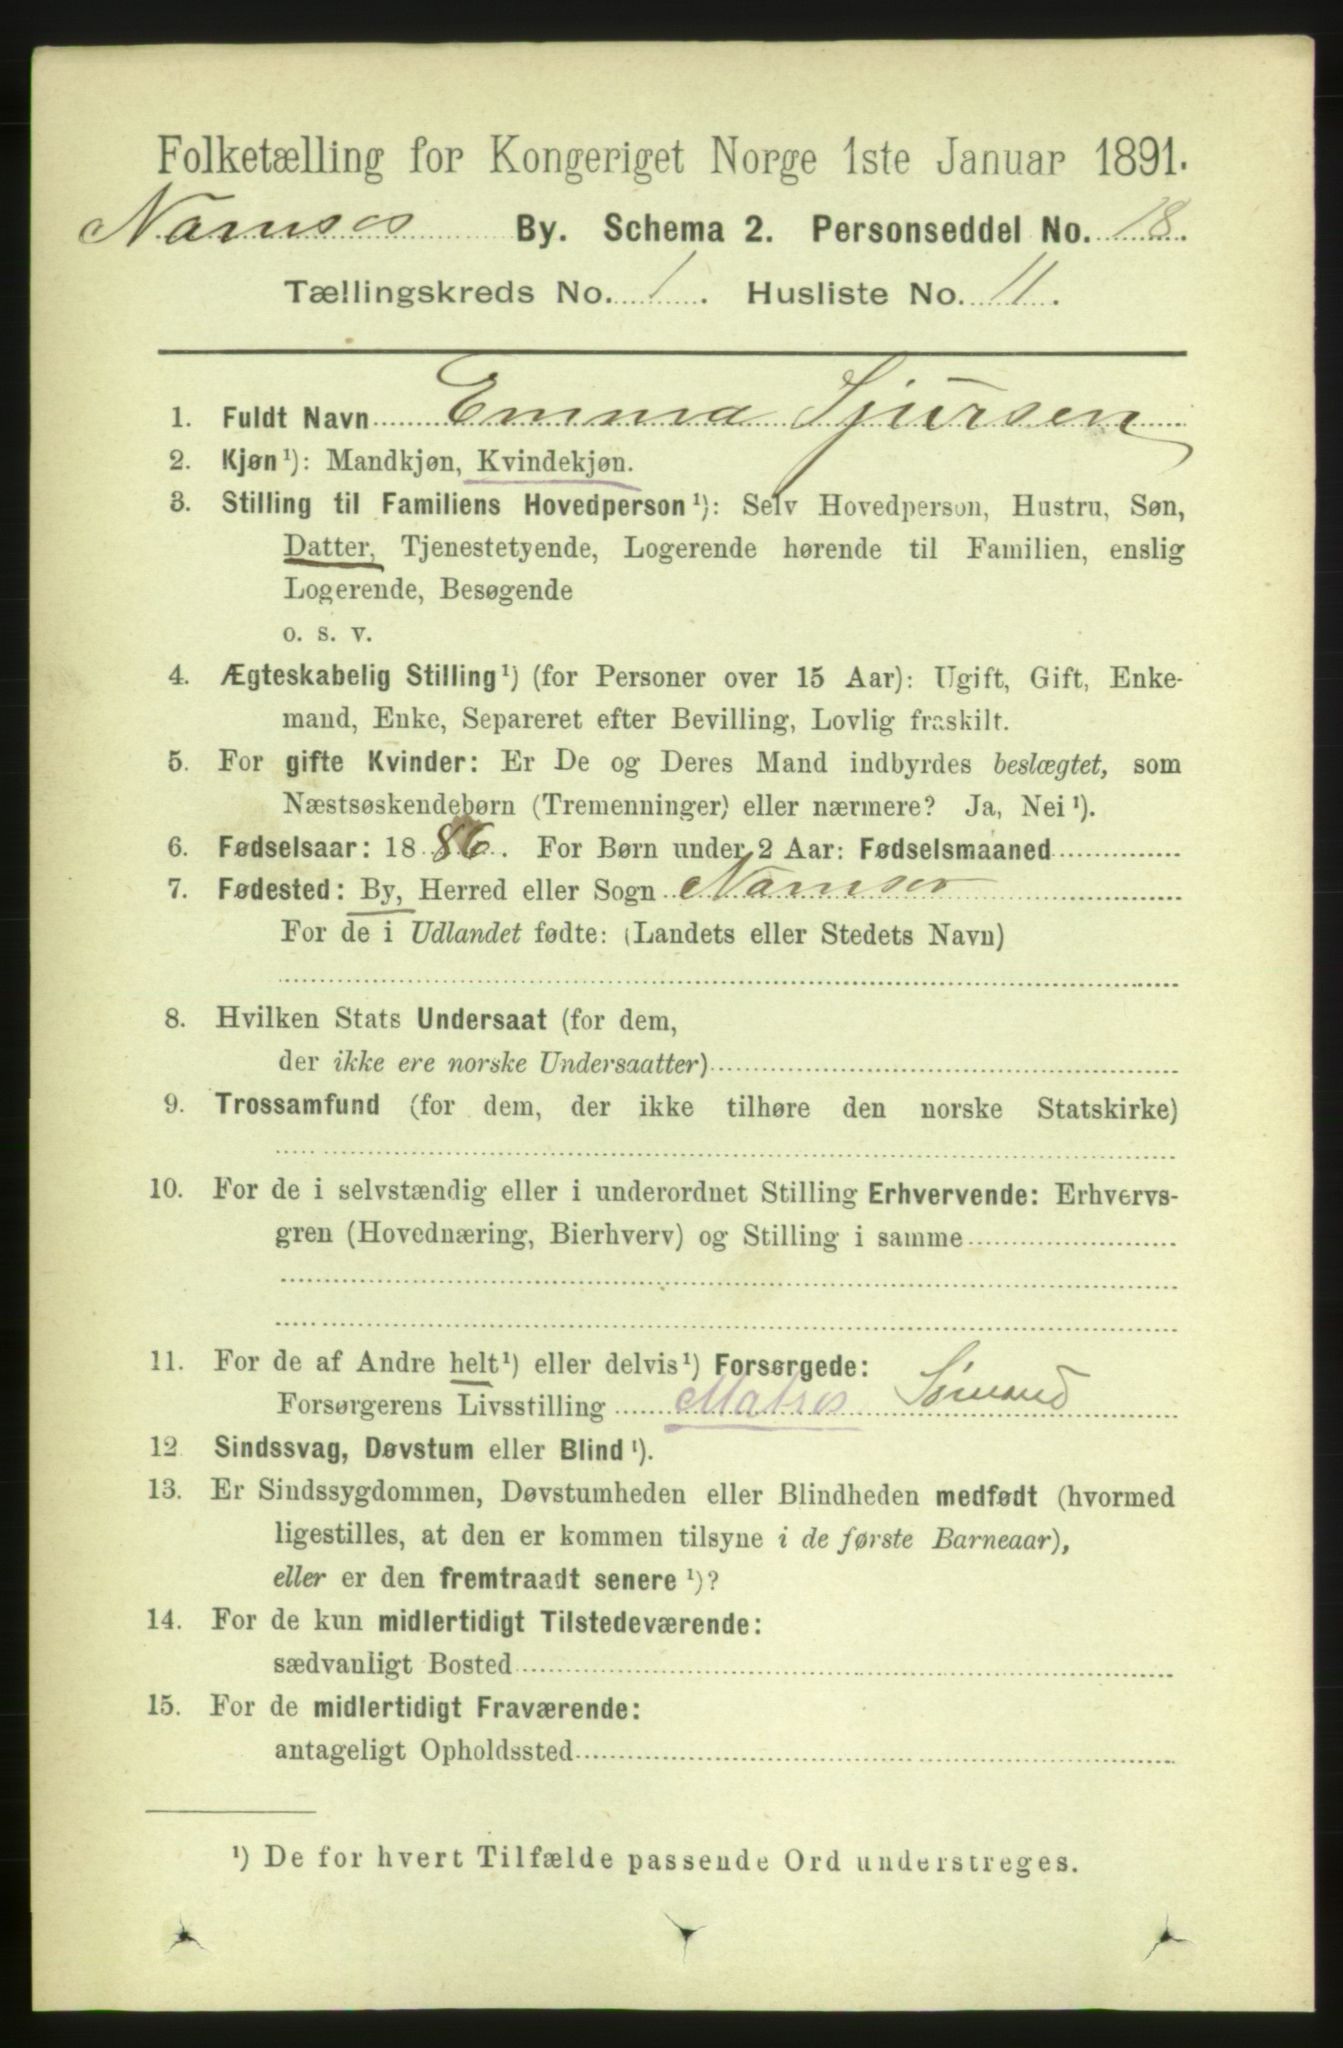 Folketælling for Kongeriget Norge 1ste Januar 1891.
Namsos By. Schema 2. Personseddel No. 18.
Tællingskreds No. 1. Husliste No. 11.
1. Fuldt Navn Emma Sjursen
2. Kjøn¹): Mandkjøn, Kvindekjøn.
3. Stilling til Familiens Hovedperson¹): Selv Hovedperson, Hustru, Søn,
Datter, Tjenestetyende, Logerende hørende til Familien, enslig
Logerende, Besøgende
o. s. v.
4. Ægteskabelig Stilling¹) (for Personer over 15 Aar): Ugift, Gift, Enke-
mand, Enke, Separeret efter Bevilling, Lovlig fraskilt.
5. For gifte Kvinder: Er De og Deres Mand indbyrdes beslægtet, som
Næstsøskendebørn (Tremenninger) eller nærmere? Ja, Nei¹).
6. Fødselsaar: 1886. For Børn under 2 Aar: Fødselsmaaned
7. Fødested: By, Herred eller Sogn Namsos
For de i Udlandet fødte: (Landets eller Stedets Navn)
8. Hvilken Stats Undersaat (for dem,
der ikke ere norske Undersaatter)
9. Trossamfund (for dem, der ikke tilhøre den norske Statskirke)
10. For de i selvstændig eller i underordnet Stilling Erhvervende: Erhvervs-
gren (Hovednæring, Bierhverv) og Stilling i samme
11. For de af Andre helt¹) eller delvis¹) Forsørgede:
Forsørgerens Livsstilling Matros Sømand
12 Sindssvag, Døvstum eller Blind¹).
13. Er Sindssygdommen, Døvstumheden eller Blindheden medfødt (hvormed
ligestilles, at den er kommen tilsyne i de første Barneaar),
eller er den fremtraadt senere¹)?
14. For de kun midlertidigt Tilstedeværende:
sædvanligt Bosted
15. For de midlertidigt Fraværende:
antageligt Opholdssted
¹) De for hvert Tilfælde passende Ord understreges.